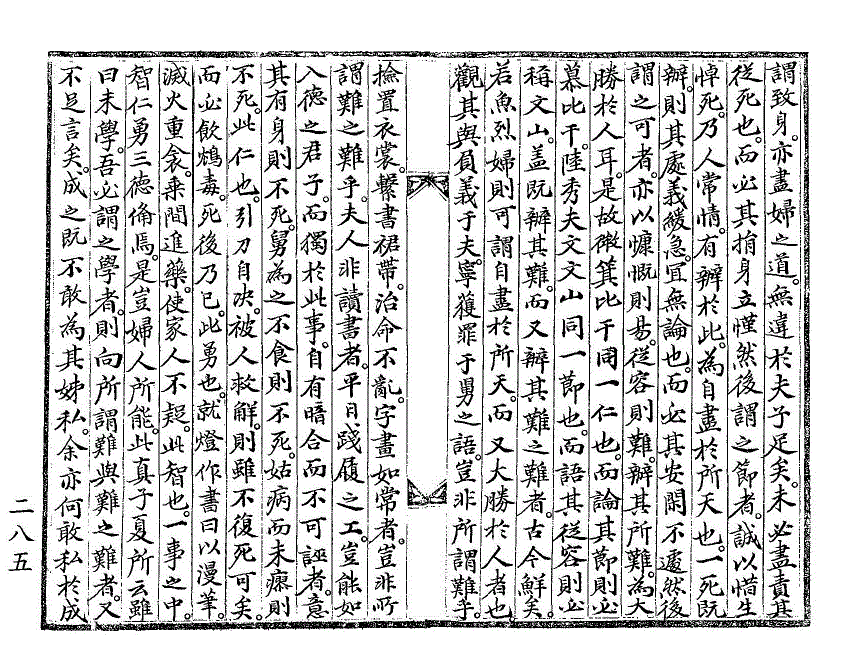 謂致身。亦盡婦之道。無違於夫子足矣。未必盡責其
從死也。而必其捐身立慬然後謂之節者。誠以惜生
悼死。乃人常情。有辨於此。為自盡於所天也。一死旣
辨。則其處義緩急。宜無論也。而必其安閒不遽然後
謂之可者。亦以慷慨則易。從容則難。辨其所難。為大
勝於人耳。是故微箕比干同一仁也。而論其節則必
慕比干。陸秀夫文文山同一節也。而語其從容則必
稱文山。盖旣辨其難。而又辨其難之難者。古今鮮矣。
若魚烈婦則可謂自盡於所天。而又大勝於人者也。
觀其與負義于夫。寧獲罪于舅之語。豈非所謂難乎。
撿置衣裳。繫書裙帶。治命不亂。字畫如常者。豈非所
謂難之難乎。夫人非讀書者。平日踐履之工。豈能如
入德之君子。而獨於此事。自有暗合而不可誣者。意
其有身則不死。舅為之不食則不死。姑病而未瘳則
不死。此仁也。引刀自决。被人救解。則雖不復死可矣。
而必飮鴆毒。死後乃已。此勇也。就燈作書曰以漫筆。
滅火重衾。乘間進藥。使家人不疑。此智也。一事之中。
智仁勇三德俻焉。是豈婦人所能。此真子夏所云雖
曰未學。吾必謂之學者。則向所謂難與難之難者。又
不足言矣。成之旣不敢為其姊私。余亦何敢私於成
二八五